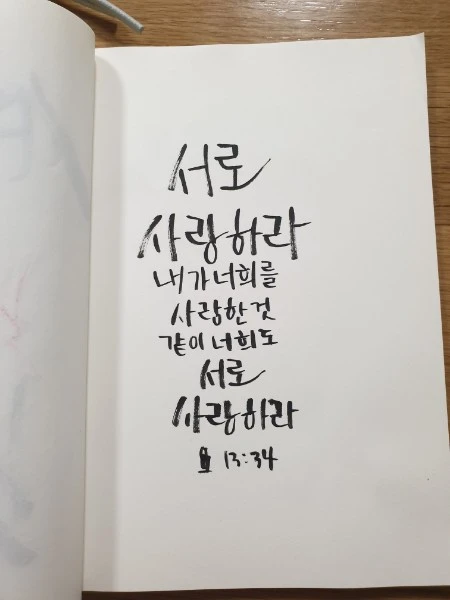 서로
사랑하라
내가 너희를
사랑한 것
같이 너희도
서로
사랑하라
13:34